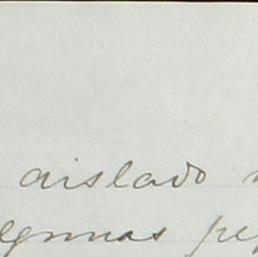 aislado
algunas pe